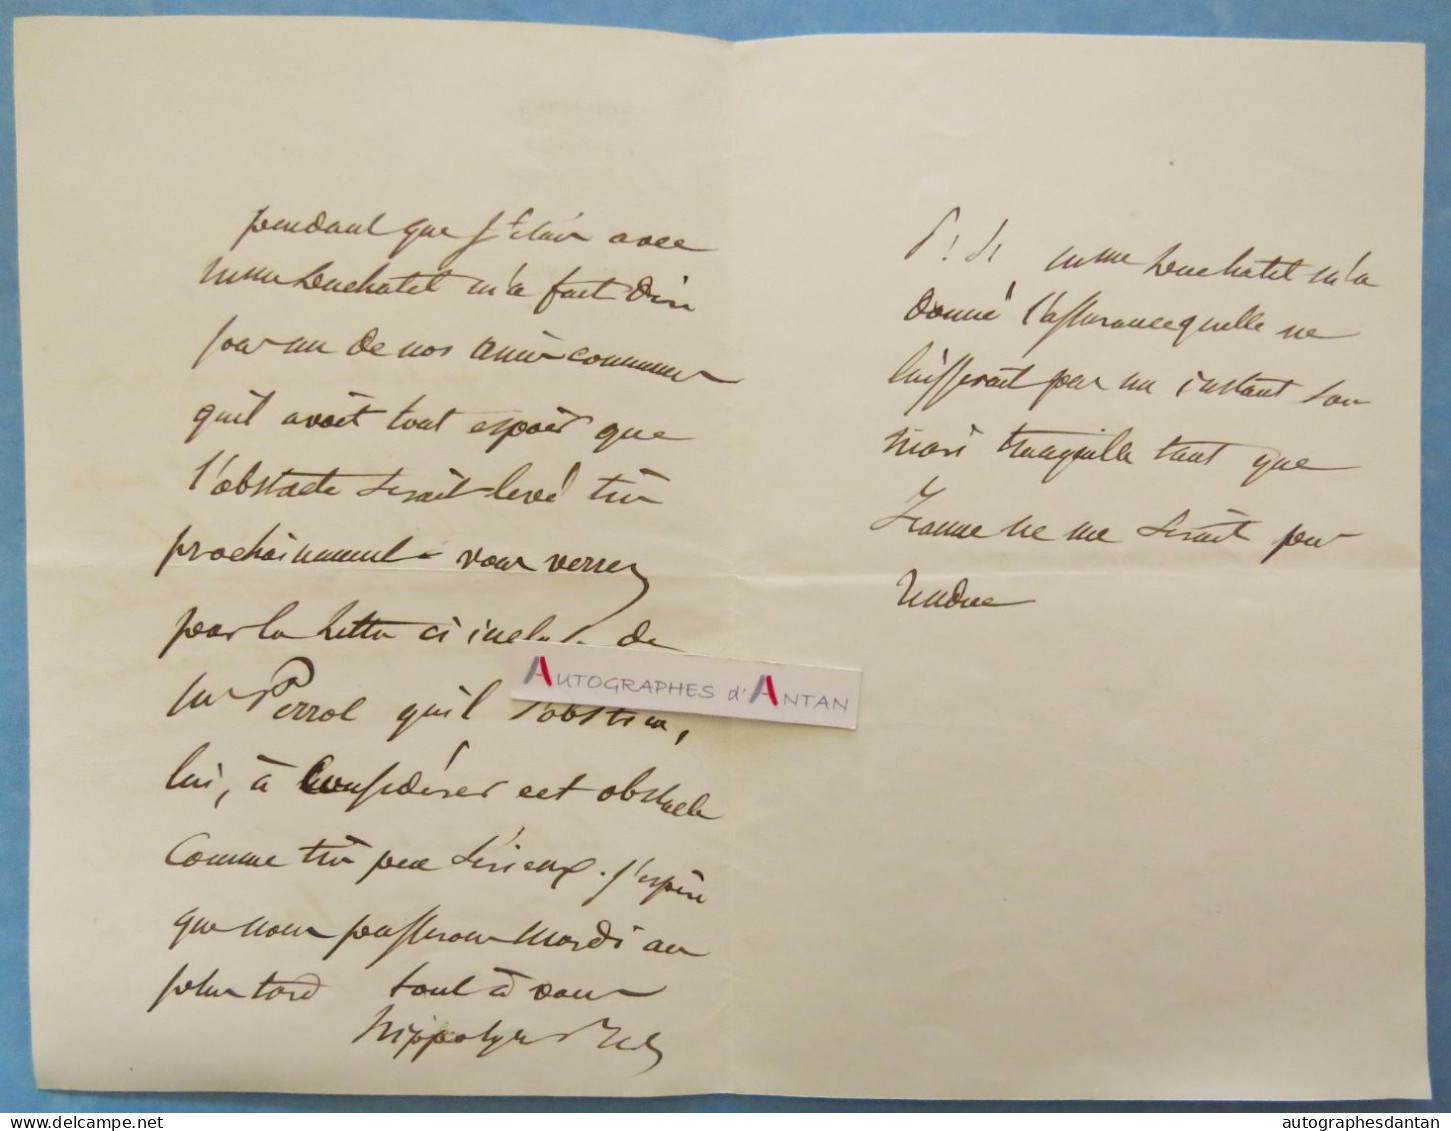 pendant que j'étais avec
mme Duchatel m'a fait dire
par un de nos amis communs
qu'il avait tout espoir que
l'obstacle serait levé très
prochainement - vous verrez
par la lettre ci incluse de
mr Perrot qu'il s'obstine,
lui, à considérer cet obstacle
comme très peu sérieux. j'espère
que nous passerons mardi au
plus tard tout à vous
hippolyte
P. S. mme Duchatel m'a
donné l'assurance qu'elle ne
laisserait pas un instant son
mari tranquille tant que
Jeanne ne me serait pas
rendue
AUTOGRAPHES d'ANTAN
autographesdantan
delcampe.net